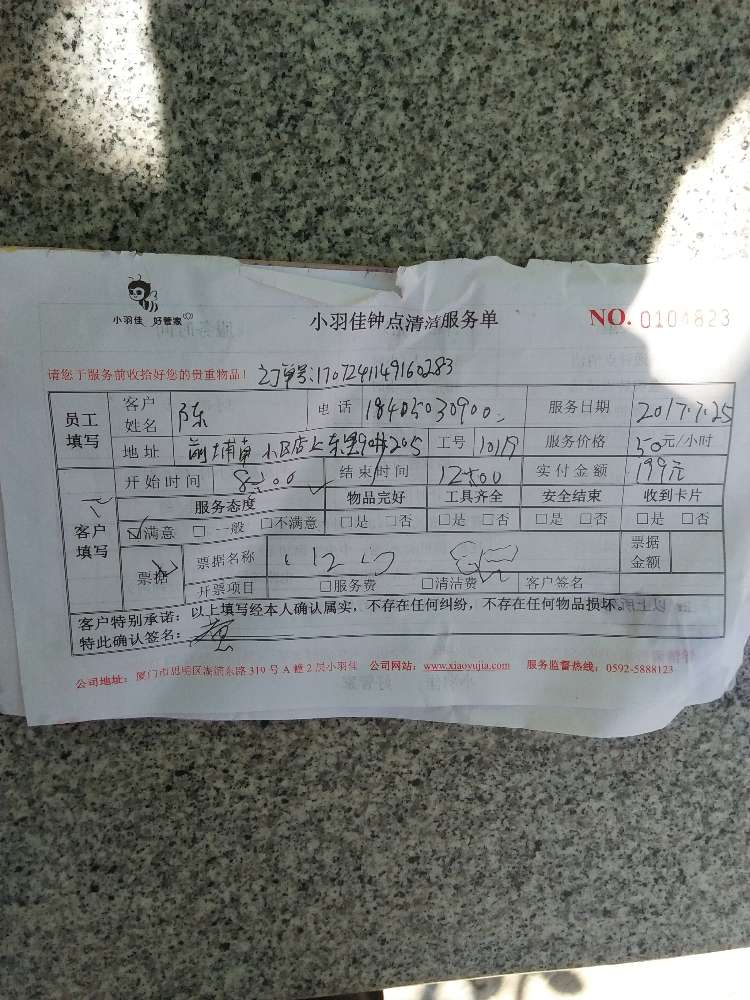 小羽佳 好管家
小羽佳钟点清洁服务单 NO. 0104823
请您于服务前收拾好您的贵重物品! 订单号:1707241149160283
员工填写 客户姓名 陈 电话 18405030900 服务日期 2017.7.25
地址 前埔南小区店上东里90#205 工号 1019 服务价格 50元/小时
开始时间 8:00 结束时间 12:00 实付金额 199元
客户填写 服务态度 物品完好 工具齐全 安全结束 收到卡片
☑满意 □一般 □不满意 □是 □否 □是 □否 □是 □否 □是 □否
票据 票据名称 票据金额
开票项目 □服务费 □清洁费 客户签名
客户特别承诺:以上填写经本人确认属实,不存在任何纠纷,不存在任何物品损坏。
特此确认签名:
公司地址:厦门市思明区湖滨东路319号A幢2层小羽佳 公司网站:www.xiaoyujia.com 服务监督热线:0592-5888123